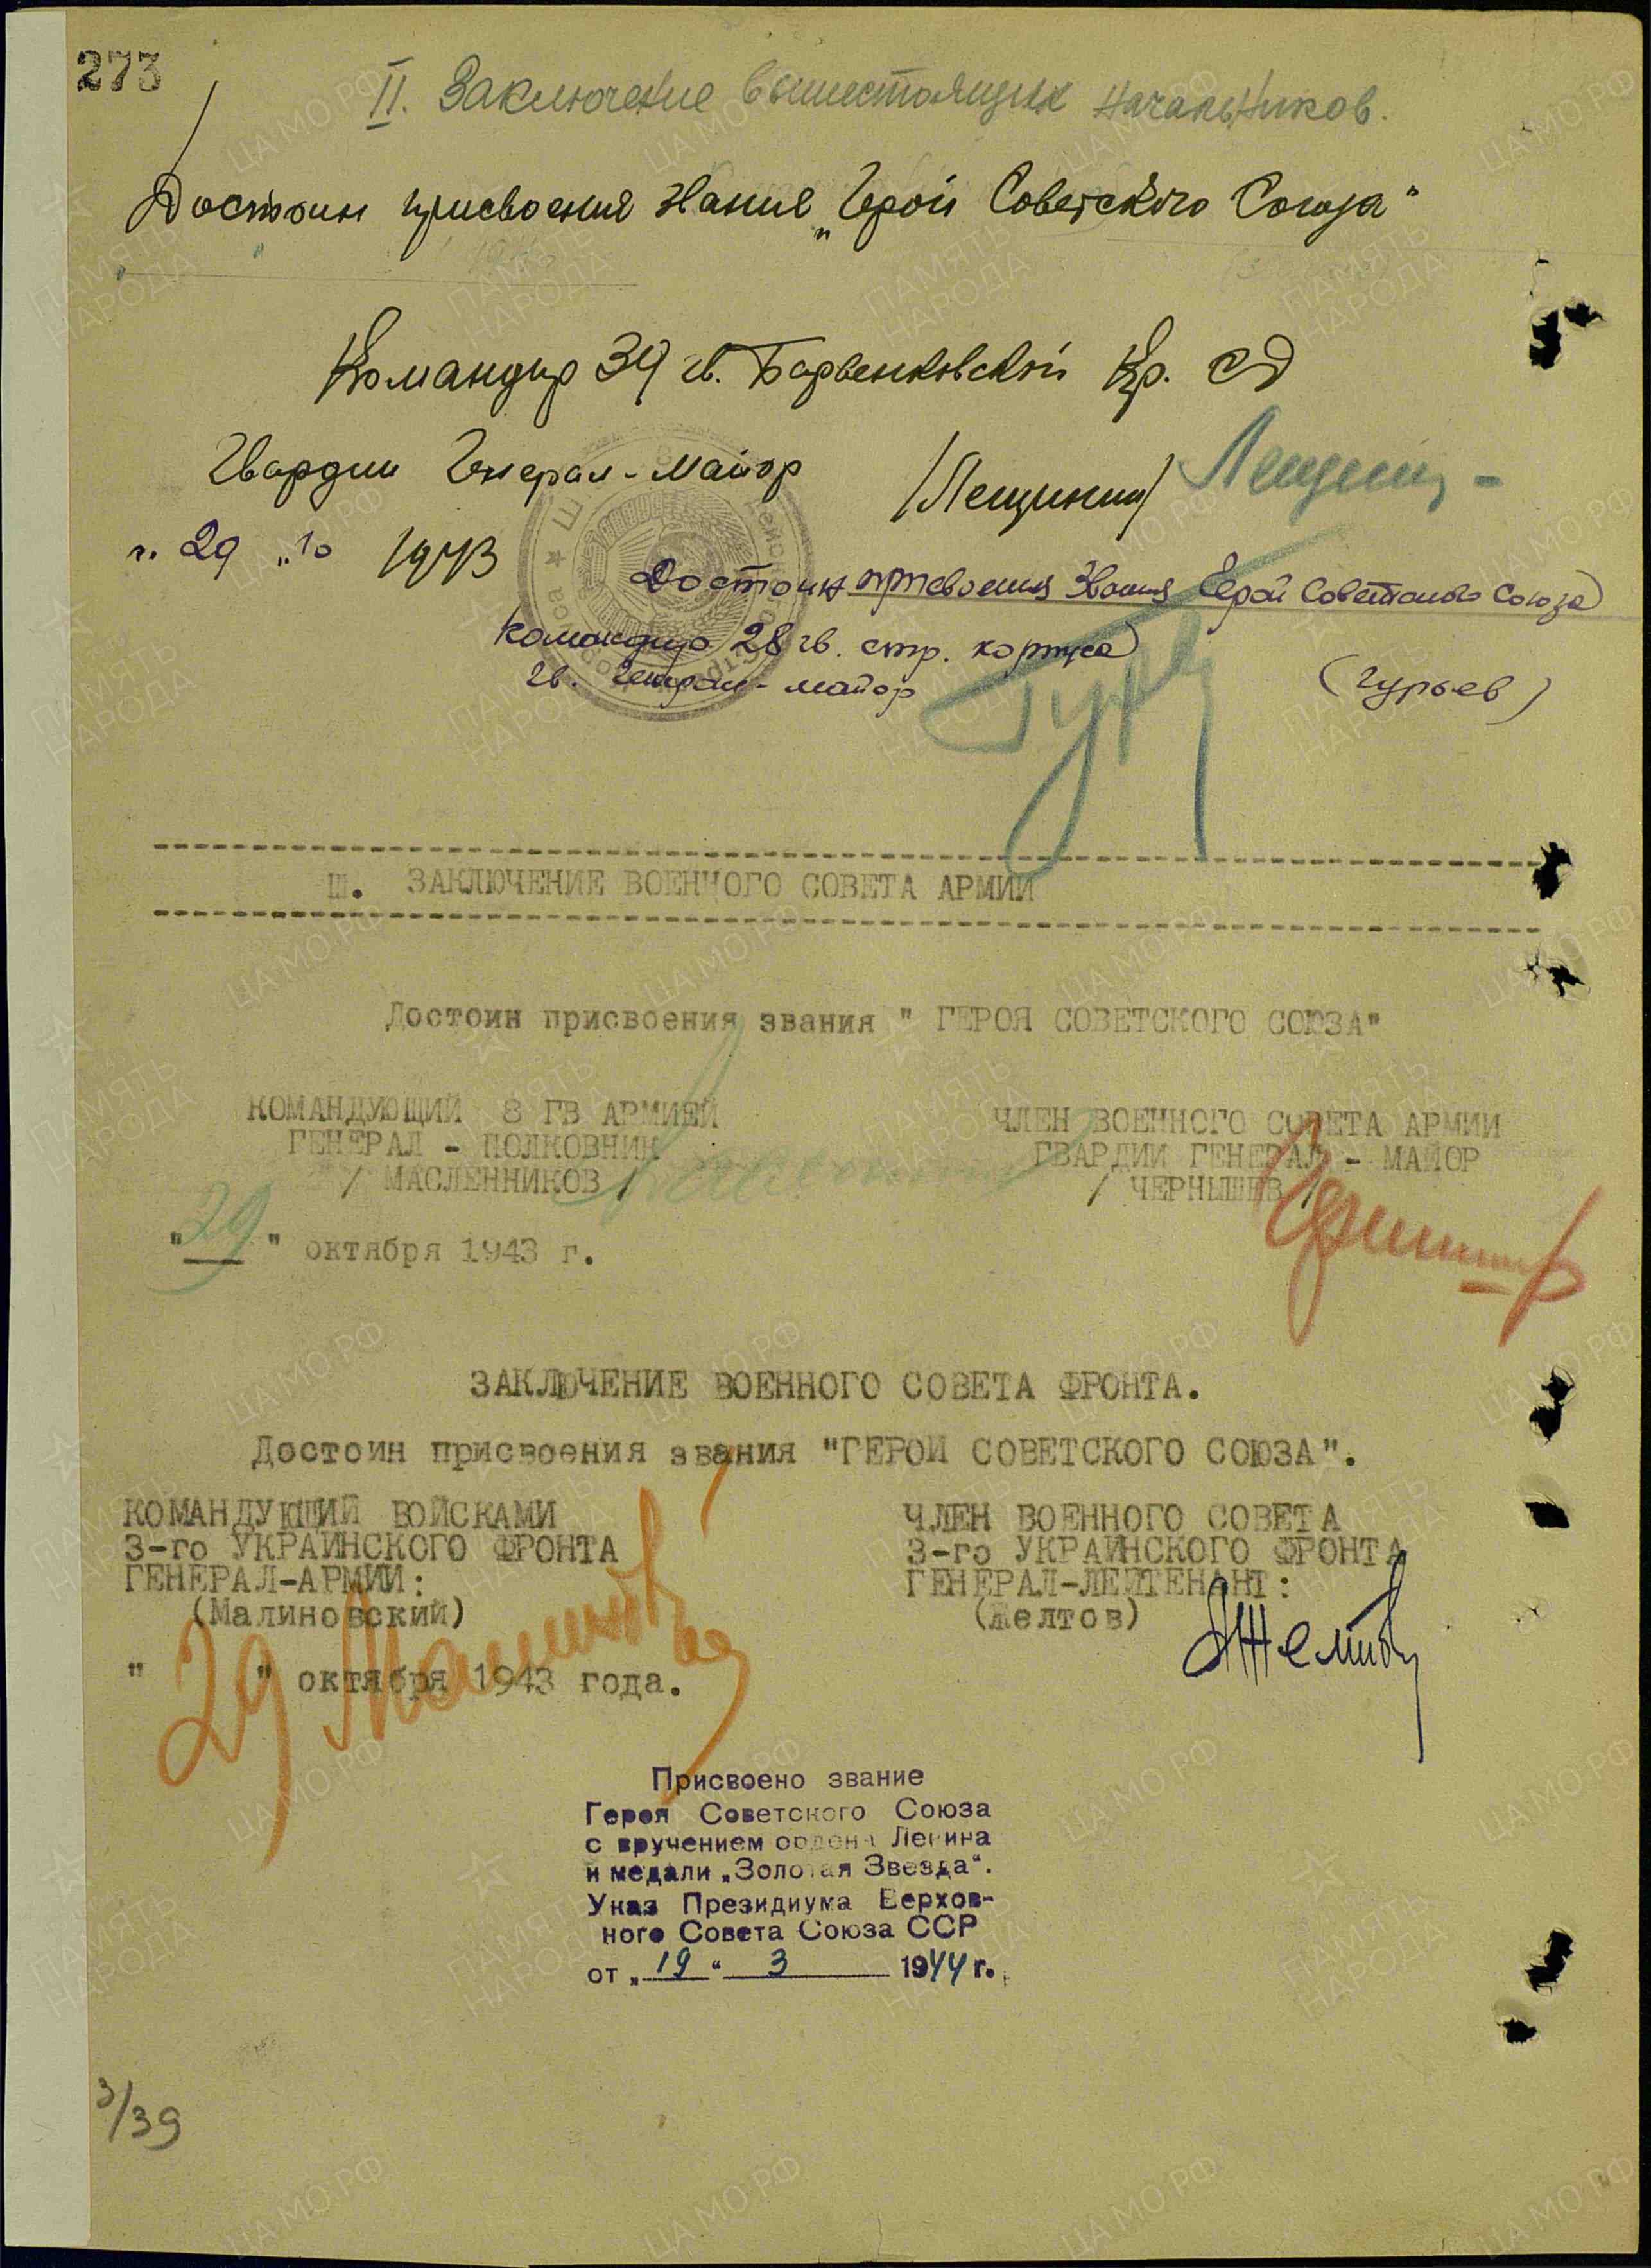 273
II. Заключение вышестоящих начальников.
Достоин присвоения звания „Герой Советского Союза"
Командир 39 гв. Барвенковской Кр. СД
Гвардии Генерал-майор /Лещинин/
29 „10 1943
Достоин присвоения звания Герой Советского Союза
командир 28 гв. стр. корпуса
гв. Генерал-майор (Гурьев)
Ш. ЗАКЛЮЧЕНИЕ ВОЕННОГО СОВЕТА АРМИИ
Достоин присвоения звания " ГЕРОЯ СОВЕТСКОГО СОЮЗА"
КОМАНДУЮЩИЙ 8 ГВ АРМИЕЙ
ГЕНЕРАЛ - ПОЛКОВНИК
/ МАСЛЕННИКОВ /
ЧЛЕН ВОЕННОГО СОВЕТА АРМИИ
ГВАРДИИ ГЕНЕРАЛ - МАЙОР
/ ЧЕРНЫШЕВ /
"29" октября 1943 г.
ЗАКЛЮЧЕНИЕ ВОЕННОГО СОВЕТА ФРОНТА.
Достоин присвоения звания "ГЕРОЙ СОВЕТСКОГО СОЮЗА".
КОМАНДУЮЩИЙ ВОЙСКАМИ
3-го УКРАИНСКОГО ФРОНТА
ГЕНЕРАЛ-АРМИИ:
(Малиновский)
ЧЛЕН ВОЕННОГО СОВЕТА
3-го УКРАИНСКОГО ФРОНТА
ГЕНЕРАЛ-ЛЕЙТЕНАНТ:
(Желтов)
"29" октября 1943 года.
Присвоено звание
Героя Советского Союза
с вручением ордена Ленина
и медали „Золотая Звезда".
Указ Президиума Верхов-
ного Совета Союза ССР
от „19" 3 1944 г.
3/39